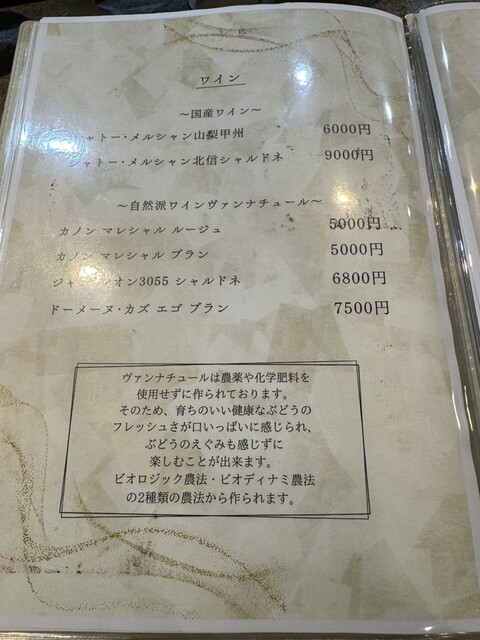 ワイン
～国産ワイン～
シャトー・メルシャン山梨甲州 6000円
シャトー・メルシャン北信シャルドネ 9000円
～自然派ワインヴァンナチュール～
カノン マレシャル ルージュ 5000円
カノン マレシャル ブラン 5000円
シャルドネ 6800円
ドーメーヌ・カズ エゴ ブラン 7500円
ヴァンナチュールは農薬や化学肥料を
使用せずに作られております。
そのため、育ちのいい健康なぶどうの
フレッシュさが口いっぱいに感じられ、
ぶどうのえぐみも感じずに
楽しむことが出来ます。
ビオロジック農法・ビオディナミ農法
の2種類の農法から作られます。